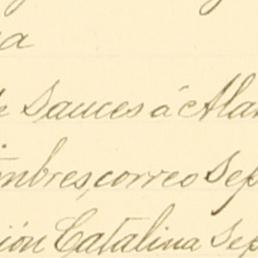 a
de Sauces á Alam
imbres, correo Sep
ión Catalina Sep